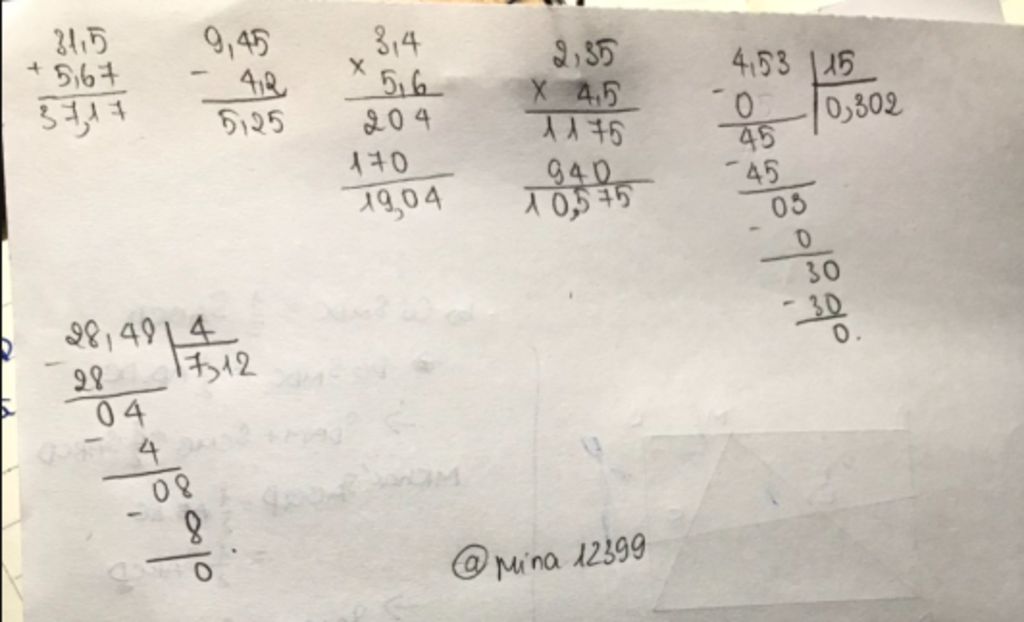 31,5
+ 5,67
37,17
9,45
- 4,2
5,25
3,4
× 5,6
204
170
19,04
2,35
× 4,5
1175
940
10,575
4,53 | 15
- 0 | 0,302
45
- 45
03
- 0
30
- 30
0.
28,48 | 4
- 28 | 7,12
04
- 4
08
- 8
0.
@mina 12399